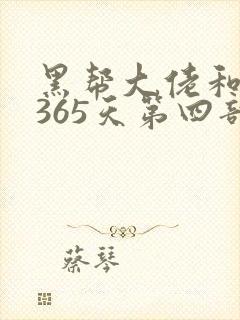 黑帮大佬和
365天第四部
蔡琴